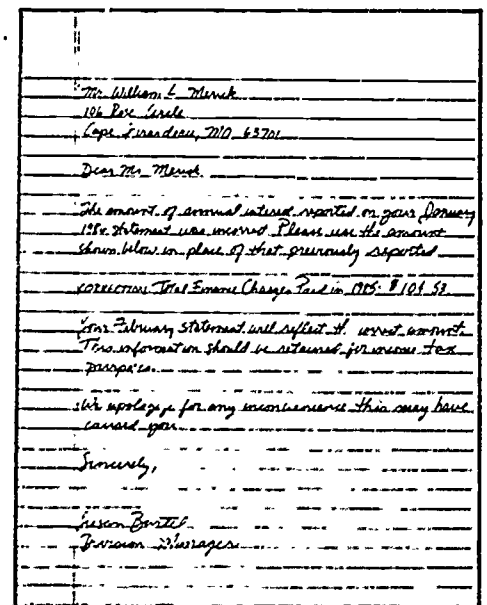 Mr. William L. Merick
106 Rose Circle
Cape Girardeau, MO 63701
Dear Mr. Merick
The amount of annual interest reported on your January
statement was incorrect Please use the amount
shown below in place of that previously reported
CORRECTION: Total Finance Charges Paid in 1985: $104.53
Your February statement will reflect the correct amount.
This information should be retained for income tax
purposes.
We apologize for any inconvenience this may have
caused you
Sincerely,
Susan Bartel
Division Manager